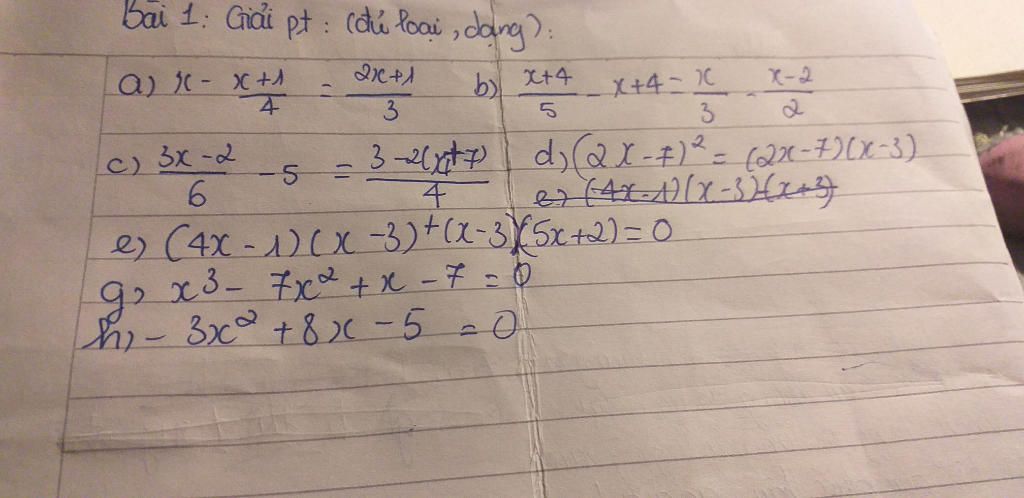 Bài 1: Giải pt: (đủ loại, dạng):
a) x - (x+1)/4 = (2x+1)/3 b) (x+4)/5 - x+4 = x/3 - (x-2)/2
c) (3x-2)/6 - 5 = (3-2(x+7))/4 d) (2x-7)² = (2x-7)(x-3)
e) (4x-1)(x-3)(x+3)
e) (4x-1)(x-3)+(x-3)(5x+2)=0
g) x³ - 7x² + x - 7 = 0
h) - 3x² + 8x - 5 = 0